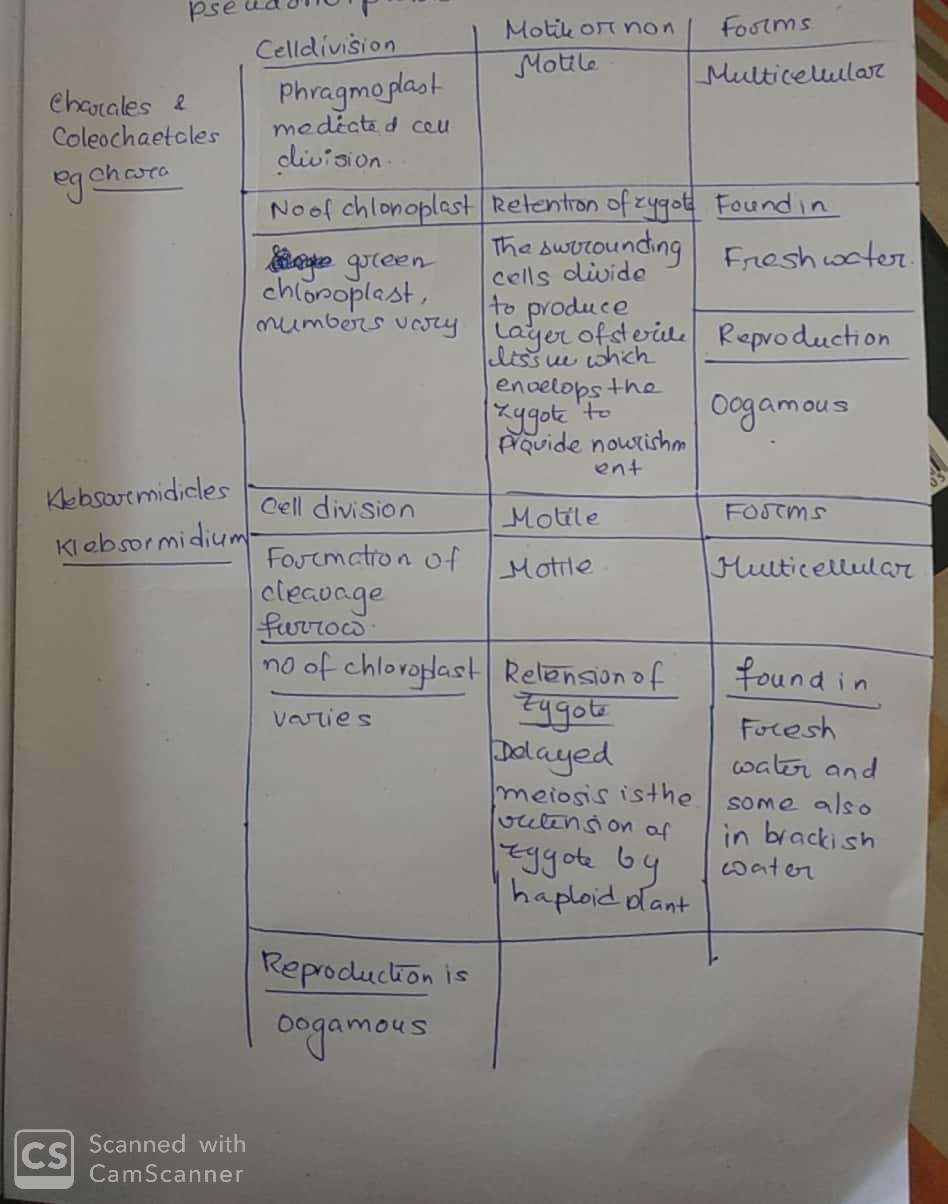 Celldivision
Motile or non
Forms
Charales &
Coleochaetales
eg chara
Phragmoplast
mediated cell
division.
Motile
Multicellular
No of chloroplast
Retention of zygote
Found in
green
chloroplast,
numbers vary
The surrounding
cells divide
to produce
layer of sterile
tissue which
envelops the
zygote to
provide nourishm
ent
Fresh water.
Reproduction
oogamous
Klebsormidicles
Klebsormidium
Cell division
Motile
Forms
Formation of
cleavage
furrow.
Motile
Multicellular
no of chloroplast
varies
Retension of
zygote
Delayed
meiosis is the
retension of
zygote by
haploid plant
found in
Fresh
water and
some also
in brackish
water
Reproduction is
oogamous
CS
Scanned with
CamScanner